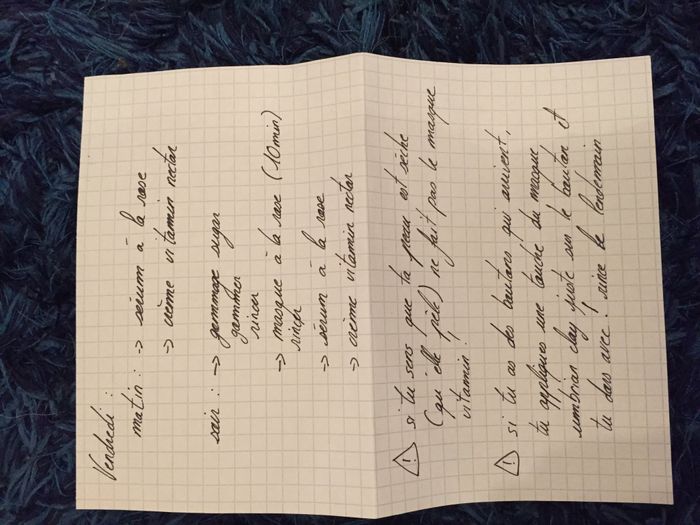 Vendredi :
matin : → sérum à la rose
→ crème vitamin nectar
soir : → gommage sugar
gommer
rincer
→ masque à la rose (10min)
rincer
→ sérum à la rose
→ crème vitamin nectar
⚠ si tu sens que ta peau est sèche
(qu'elle pèle) ne fait pas le masque
vitamin !
⚠ si tu as des boutons qui arrivent,
tu appliques une touche du masque
umbrian clay juste sur le bouton et
tu dors avec ! rince le lendemain